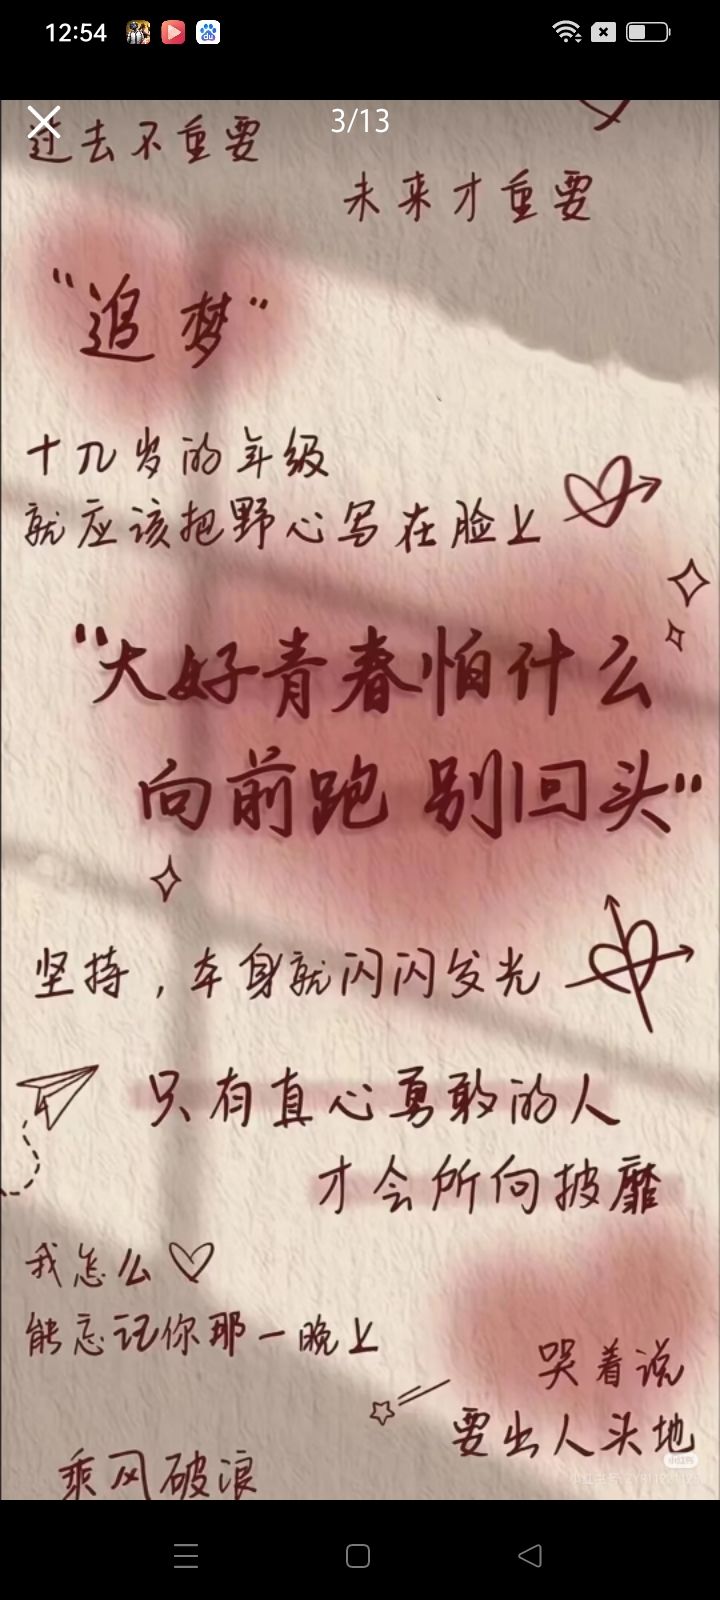 12:54
3/13
过去不重要
未来才重要
“追梦”
十几岁的年级
就应该把野心写在脸上
“大好青春怕什么
向前跑 别回头”
坚持，本身就闪闪发光
只有真心勇敢的人
才会所向披靡
我怎么
能忘记你那一晚上
哭着说
要出人头地
小红书
乘风破浪